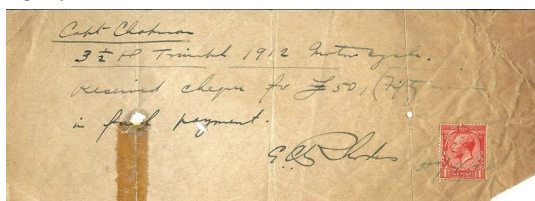 Capt Chapman
3 ½ HP Triumph 1912 Motor cycle.
Received cheque for £50, (Fifty
in full payment.
Rhodes